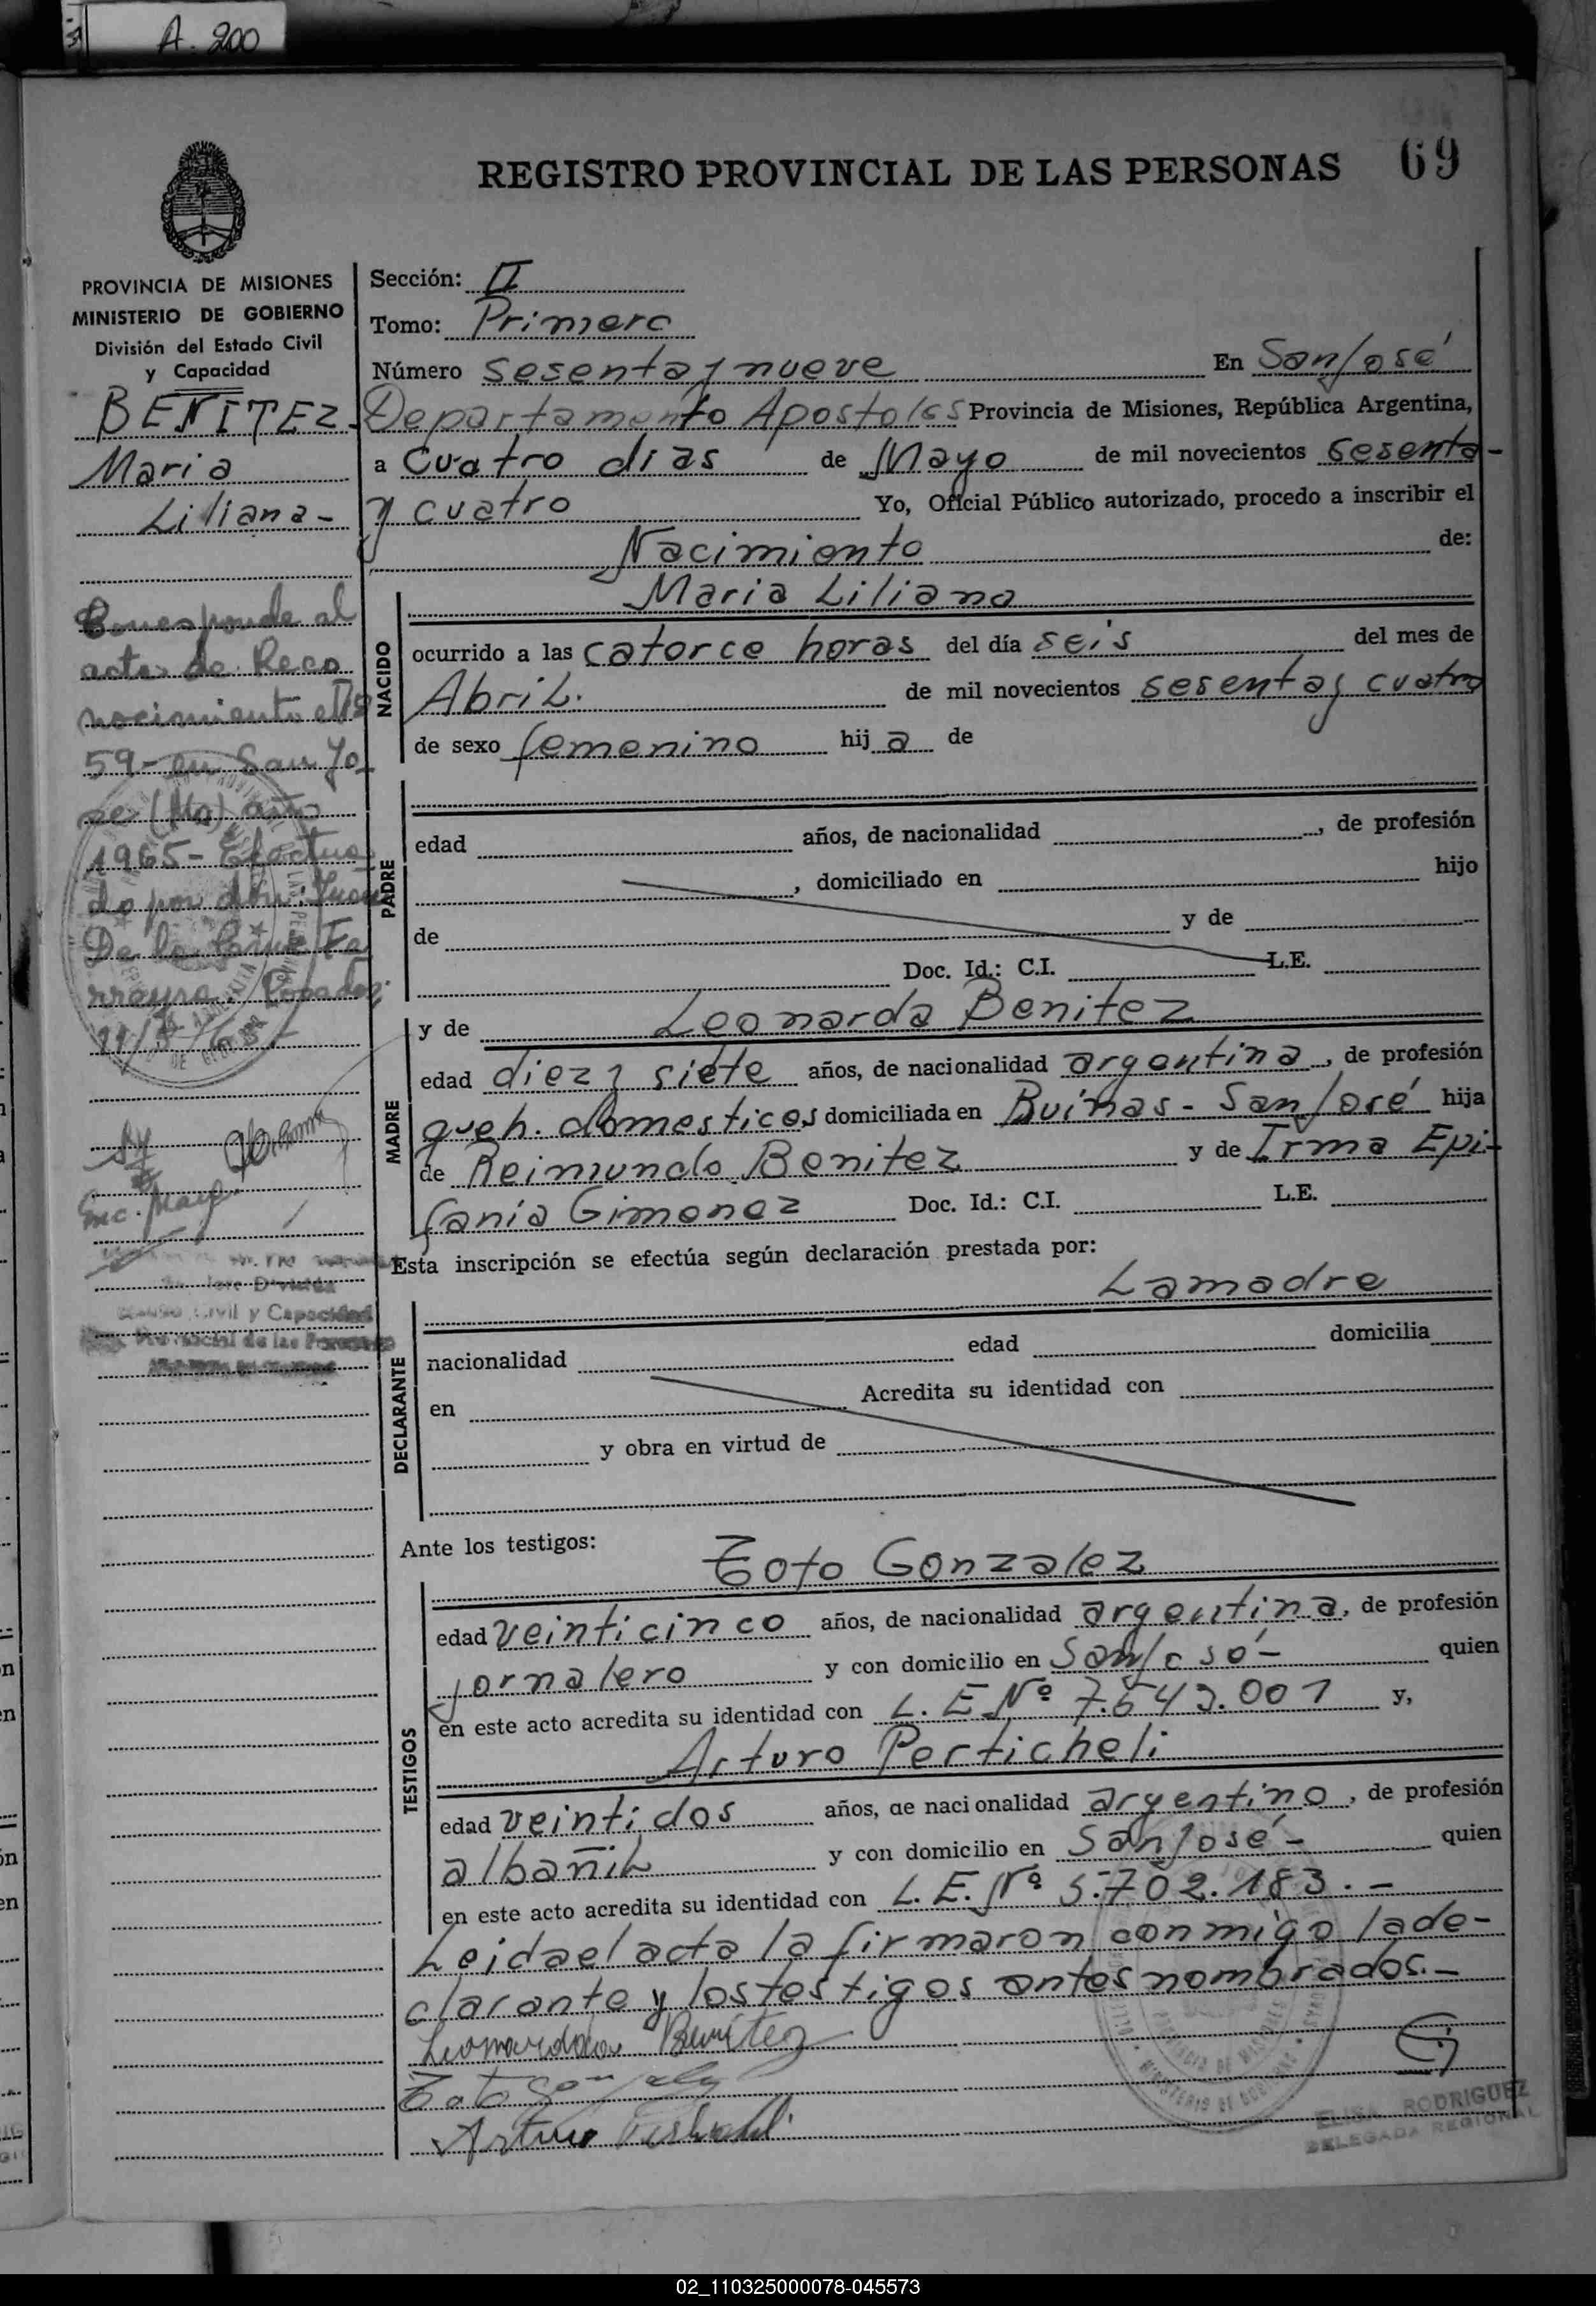 A. 200
69
REGISTRO PROVINCIAL DE LAS PERSONAS
PROVINCIA DE MISIONES
MINISTERIO DE GOBIERNO
División del Estado Civil
y Capacidad
BENITEZ
Maria
Liliana-
Corresponde al
acta de Reco
nocimiento Nº
59- en San Jo
se (Ms) año
1965- Efectua
do por don: Juan
De la Cruz Fe
rreyra.
Sección: II
Tomo: Primero
Número sesenta y nueve En San José
Departamento Apostoles Provincia de Misiones, República Argentina,
a cuatro dias de Mayo de mil novecientos sesenta-
y cuatro Yo, Oficial Público autorizado, procedo a inscribir el
Nacimiento de:
NACIDO
Maria Liliana
ocurrido a las catorce horas del día seis del mes de
Abril. de mil novecientos sesenta y cuatro
de sexo femenino hij a de
PADRE
edad años, de nacionalidad , de profesión
, domiciliado en hijo
de y de
Doc. Id.: C.I. L.E.
MADRE
y de Leonarda Benitez
edad diez y siete años, de nacionalidad argentina, de profesión
queh. domesticos domiciliada en Buinas - San José hija
de Reimundo Benitez y de Irma Epi-
fania Gimenez Doc. Id.: C.I. L.E.
Esta inscripción se efectúa según declaración prestada por:
La madre
DECLARANTE
nacionalidad edad domicilia
en Acredita su identidad con
y obra en virtud de
Ante los testigos:
TESTIGOS
Toto Gonzalez
edad veinticinco años, de nacionalidad argentina, de profesión
jornalero y con domicilio en San José- quien
en este acto acredita su identidad con L. E Nº 7.543.001 y,
Arturo Perticheli
edad veintidos años, de nacionalidad argentino, de profesión
albañil y con domicilio en San José- quien
en este acto acredita su identidad con L. E. Nº 5.702.183.-
Leida el acta la firmaron conmigo la de-
clarante y los testigos antes nombrados.-
Leonarda Benitez
Toto Gonzalez
Arturo
ELISA RODRIGUEZ
DELEGADA REGIONAL
02_110325000078-045573